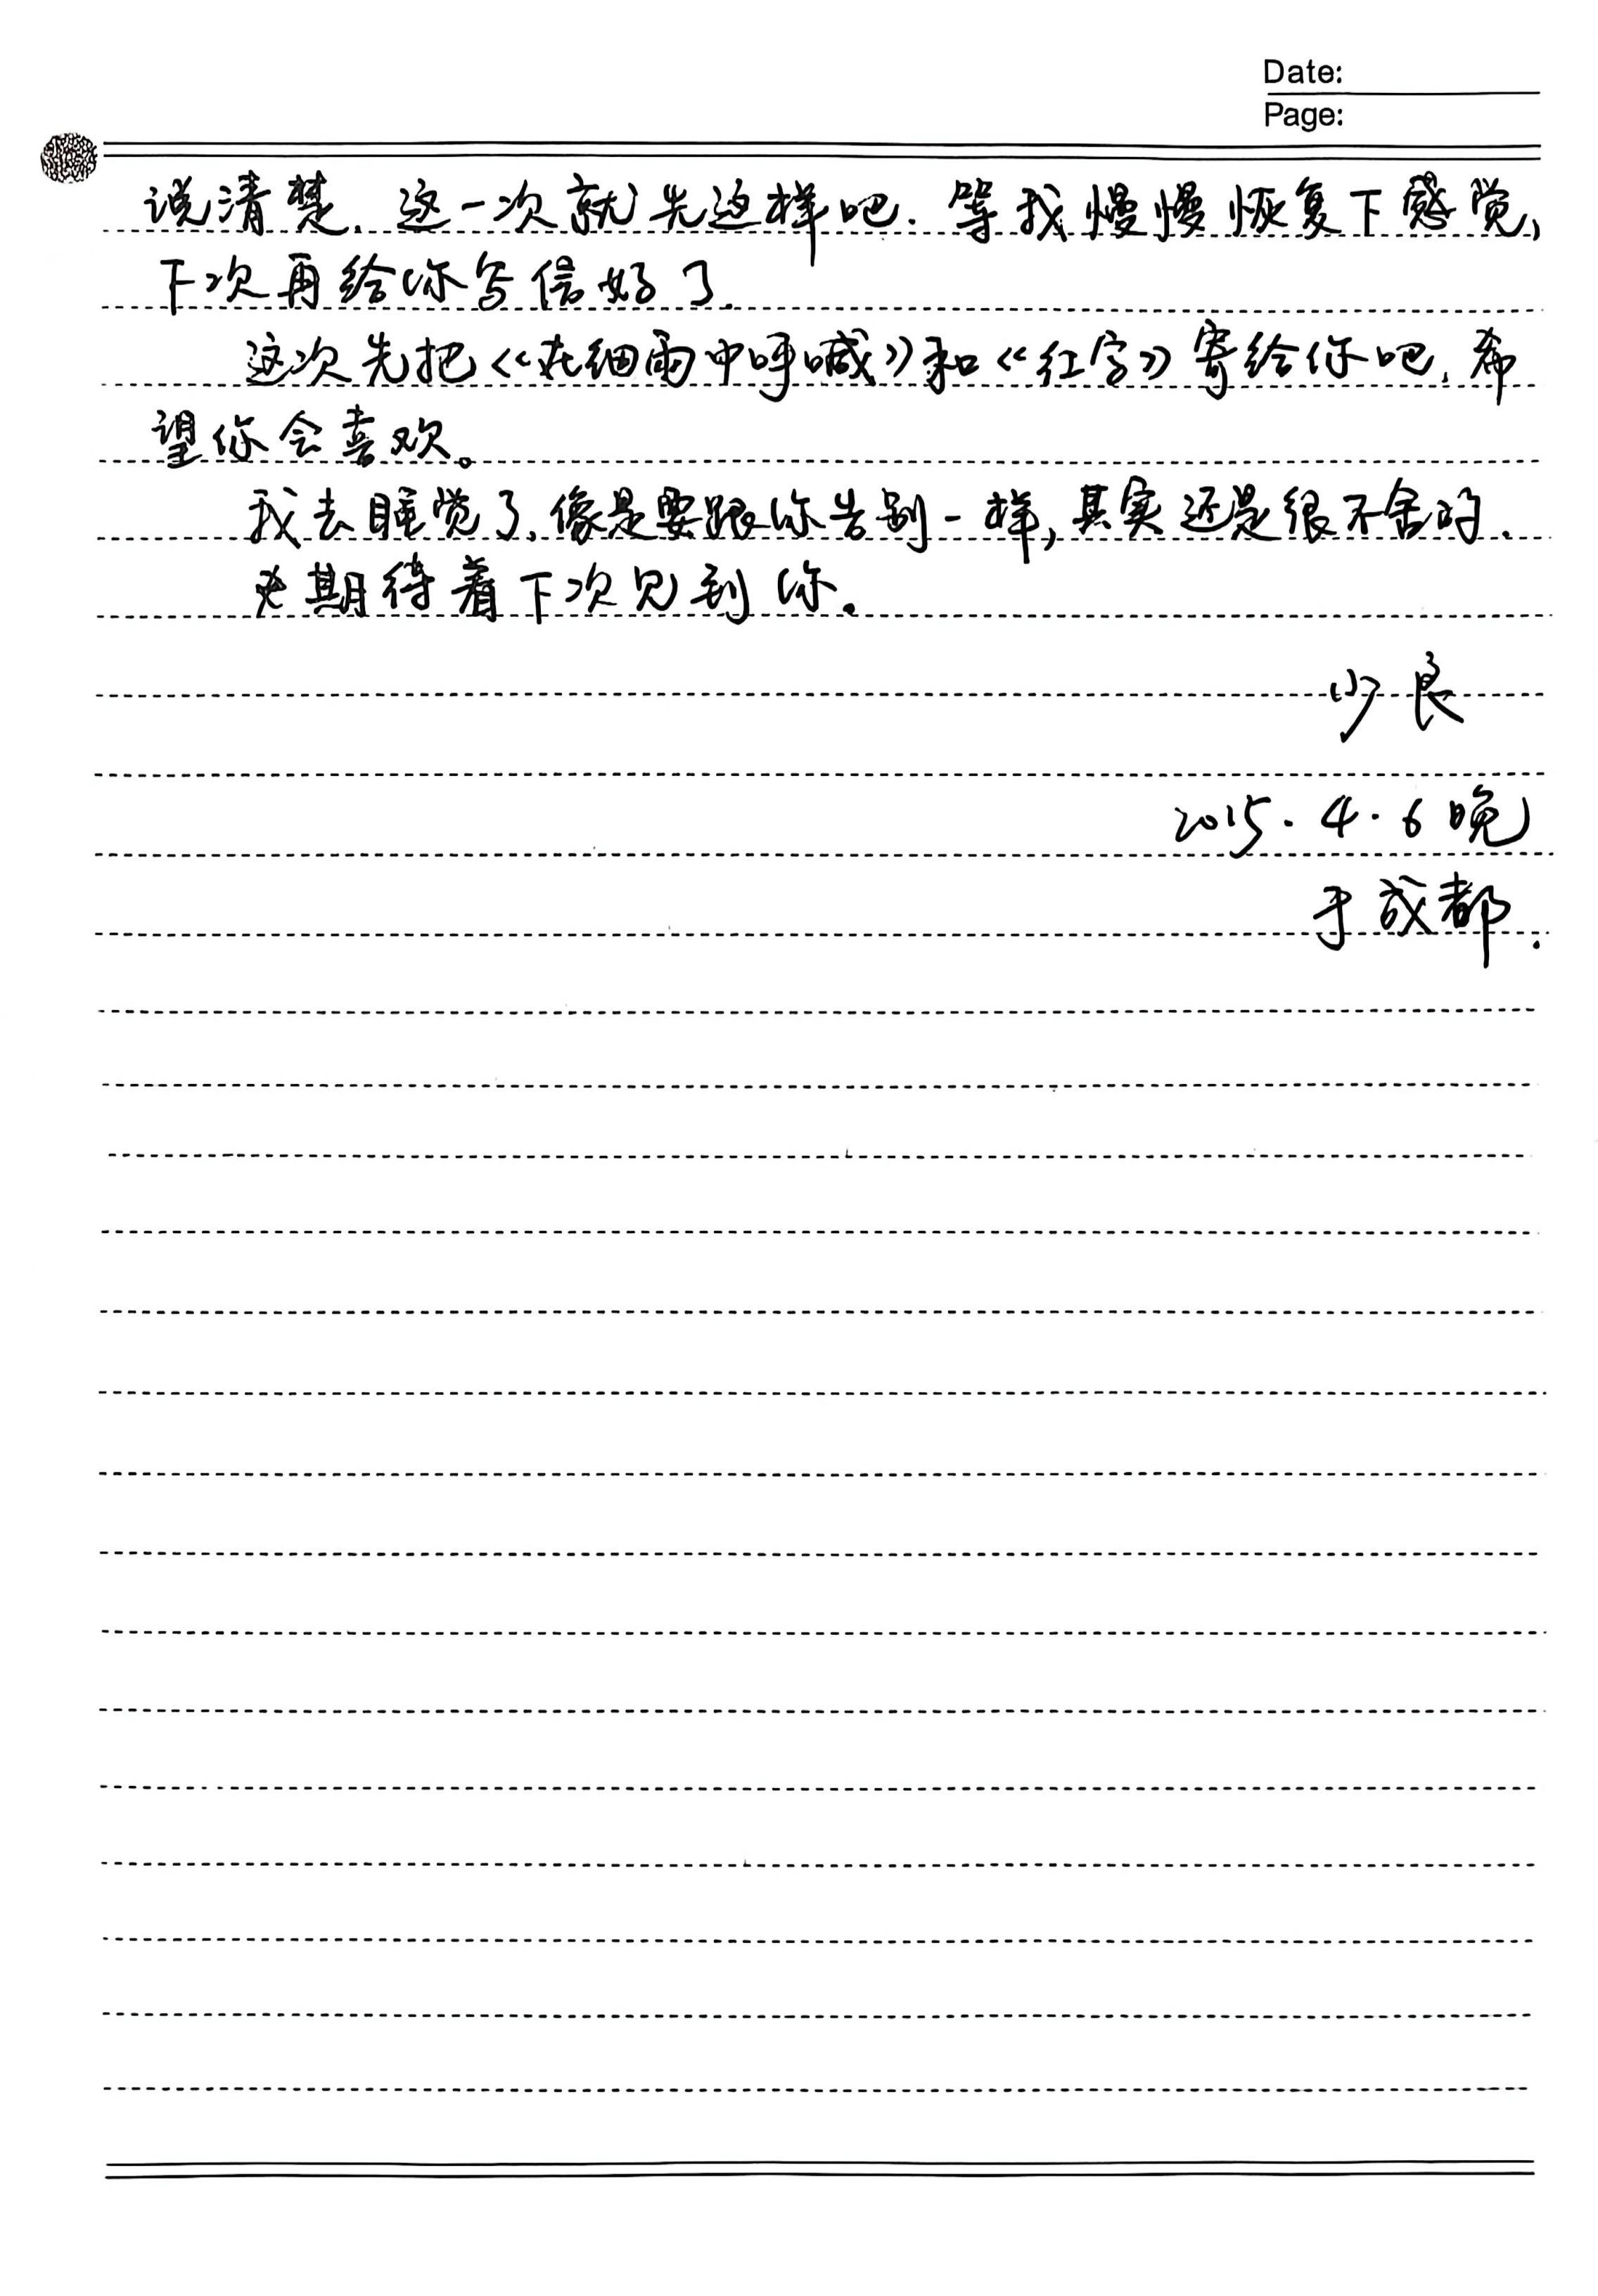 Date:
Page:
说清楚.这一次就先这样吧.等我慢慢恢复下感觉,
下次再给你写信好了.
这次先把《在细雨中呼喊》和《红字》寄给你吧,希
望你会喜欢。
我去睡觉了,像是要跟你告别一样,其实还是很不舍的.
期待着下次见到你。
少良
2015.4.6晚
于成都.